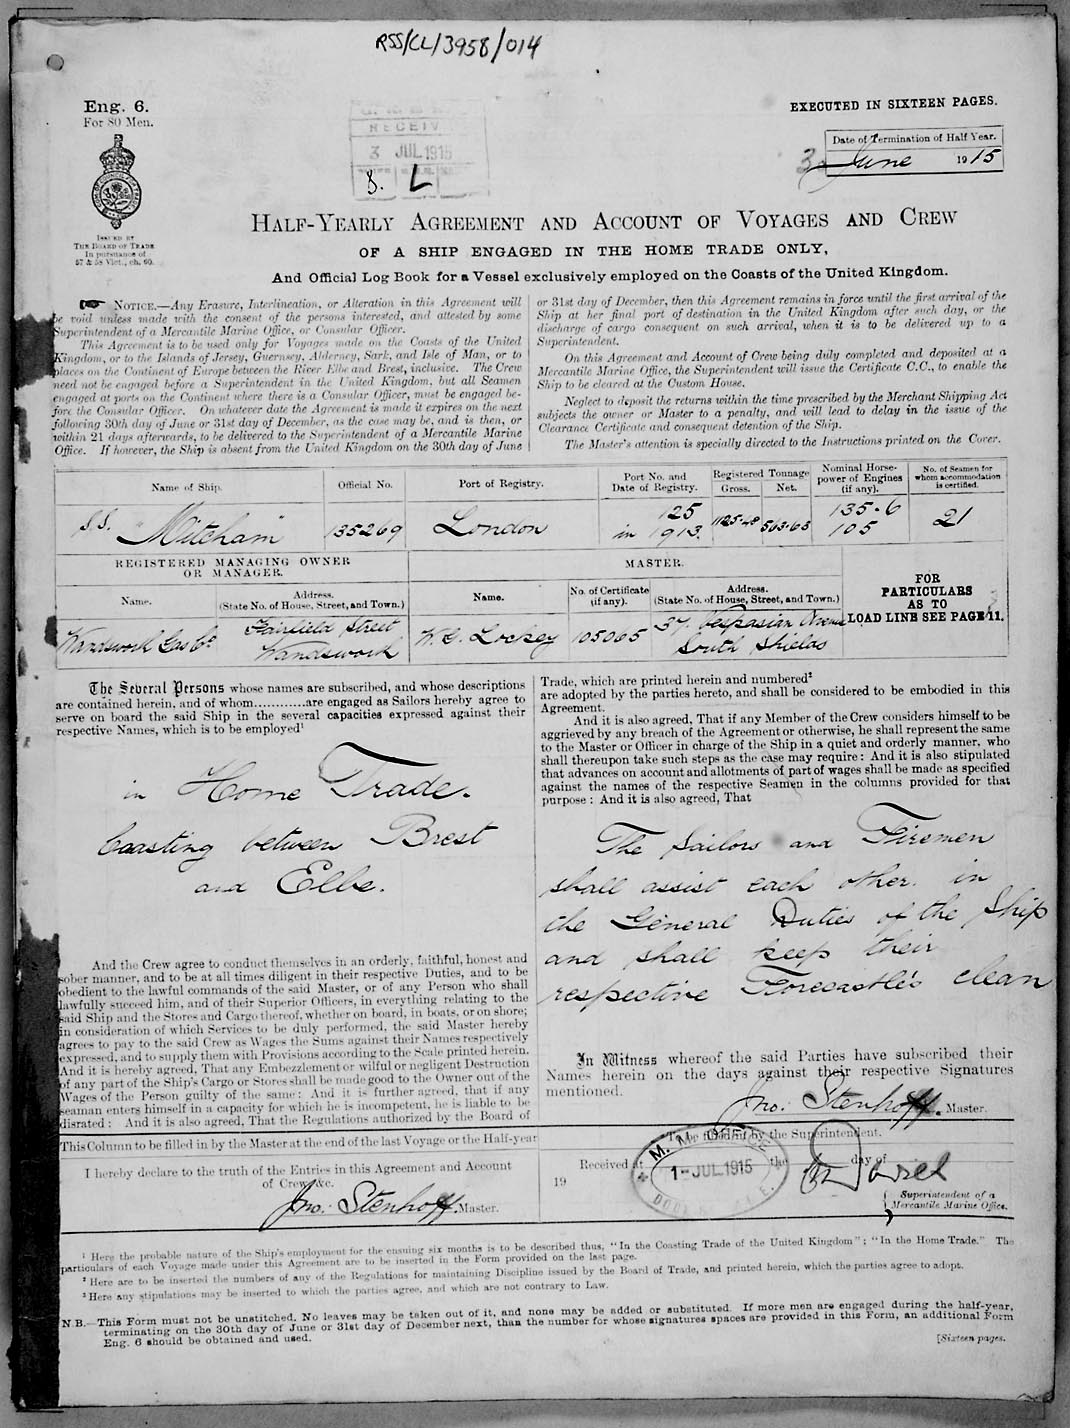 RSS/CL/3958/014
Eng. 6.
For 80 Men.
EXECUTED IN SIXTEEN PAGES.
RECEIV
3 JUL 1915
8. L
Date of Termination of Half Year.
30 June 1915
ISSUED BY
THE BOARD OF TRADE
In pursuance of
57 & 58 Vict., ch. 60.
HALF-YEARLY AGREEMENT AND ACCOUNT OF VOYAGES AND CREW
OF A SHIP ENGAGED IN THE HOME TRADE ONLY,
And Official Log Book for a Vessel exclusively employed on the Coasts of the United Kingdom.
NOTICE.—Any Erasure, Interlineation, or Alteration in this Agreement will
be void unless made with the consent of the persons interested, and attested by some
Superintendent of a Mercantile Marine Office, or Consular Officer.
This Agreement is to be used only for Voyages made on the Coasts of the United
Kingdom, or to the Islands of Jersey, Guernsey, Alderney, Sark, and Isle of Man, or to
places on the Continent of Europe between the River Elbe and Brest, inclusive. The Crew
need not be engaged before a Superintendent in the United Kingdom, but all Seamen
engaged at ports on the Continent where there is a Consular Officer, must be engaged be-
fore the Consular Officer. On whatever date the Agreement is made it expires on the next
following 30th day of June or 31st day of December, as the case may be, and is then, or
within 21 days afterwards, to be delivered to the Superintendent of a Mercantile Marine
Office. If however, the Ship is absent from the United Kingdom on the 30th day of June
or 31st day of December, then this Agreement remains in force until the first arrival of the
Ship at her final port of destination in the United Kingdom after such day, or the
discharge of cargo consequent on such arrival, when it is to be delivered up to a
Superintendent.
On this Agreement and Account of Crew being duly completed and deposited at a
Mercantile Marine Office, the Superintendent will issue the Certificate C.C., to enable the
Ship to be cleared at the Custom House.
Neglect to deposit the returns within the time prescribed by the Merchant Shipping Act
subjects the owner or Master to a penalty, and will lead to delay in the issue of the
Clearance Certificate and consequent detention of the Ship.
The Master's attention is specially directed to the Instructions printed on the Cover.
Name of Ship. Official No. Port of Registry. Port No. and Date of Registry. Registered Tonnage Gross. Net. Nominal Horse-power of Engines (if any). No. of Seamen for whom accommodation is certified.
S.S. "Mitcham" 135269 London 125 in 1913. 1125.48 563.63 135.6 105 21
REGISTERED MANAGING OWNER OR MANAGER. MASTER.
Name. Address. (State No. of House, Street, and Town.) Name. No. of Certificate (if any). Address. (State No. of House, Street, and Town.)
FOR PARTICULARS AS TO LOAD LINE SEE PAGE 11.
Wandsworth Gas Co. Fairfield Street Wandsworth W. G. Lockey 105065 37. Vespasian Avenue South Shields
The Several Persons whose names are subscribed, and whose descriptions
are contained herein, and of whom............are engaged as Sailors hereby agree to
serve on board the said Ship in the several capacities expressed against their
respective Names, which is to be employed¹
in Home Trade.
Coasting between Brest
and Elbe.
And the Crew agree to conduct themselves in an orderly, faithful, honest and
sober manner, and to be at all times diligent in their respective Duties, and to be
obedient to the lawful commands of the said Master, or of any Person who shall
lawfully succeed him, and of their Superior Officers, in everything relating to the
said Ship and the Stores and Cargo thereof, whether on board, in boats, or on shore;
in consideration of which Services to be duly performed, the said Master hereby
agrees to pay to the said Crew as Wages the Sums against their Names respectively
expressed, and to supply them with Provisions according to the Scale printed herein.
And it is hereby agreed, That any Embezzlement or wilful or negligent Destruction
of any part of the Ship's Cargo or Stores shall be made good to the Owner out of the
Wages of the Person guilty of the same: And it is further agreed, that if any
seaman enters himself in a capacity for which he is incompetent, he is liable to be
disrated: And it is also agreed, That the Regulations authorized by the Board of
Trade, which are printed herein and numbered²
are adopted by the parties hereto, and shall be considered to be embodied in this
Agreement.
And it is also agreed, That if any Member of the Crew considers himself to be
aggrieved by any breach of the Agreement or otherwise, he shall represent the same
to the Master or Officer in charge of the Ship in a quiet and orderly manner, who
shall thereupon take such steps as the case may require: And it is also stipulated
that advances on account and allotments of part of wages shall be made as specified
against the names of the respective Seamen in the columns provided for that
purpose: And it is also agreed, That
The Sailors and Firemen
shall assist each other. in
the General Duties of the Ship
and shall keep their
respective Forecastle's clean
In Witness whereof the said Parties have subscribed their
Names herein on the days against their respective Signatures
mentioned.
Jno: Stenhoff. Master.
This Column to be filled in by the Master at the end of the last Voyage or the Half-year
I hereby declare to the truth of the Entries in this Agreement and Account
of Crew, &c.
Jno: Stenhoff. Master.
To be filled in by the Superintendent.
Received at the day of
19
M. M. OFFICE
1- JUL 1915
Superintendent of a
Mercantile Marine Office.
¹ Here the probable nature of the Ship's employment for the ensuing six months is to be described thus, "In the Coasting Trade of the United Kingdom"; "In the Home Trade." The
particulars of each Voyage made under this Agreement are to be inserted in the Form provided on the last page.
² Here are to be inserted the numbers of any of the Regulations for maintaining Discipline issued by the Board of Trade, and printed herein, which the parties agree to adopt.
³ Here any stipulations may be inserted to which the parties agree, and which are not contrary to Law.
N.B.—This Form must not be unstitched. No leaves may be taken out of it, and none may be added or substituted. If more men are engaged during the half-year,
terminating on the 30th day of June or 31st day of December next, than the number for whose signatures spaces are provided in this Form, an additional Form
Eng. 6 should be obtained and used.
[Sixteen pages.